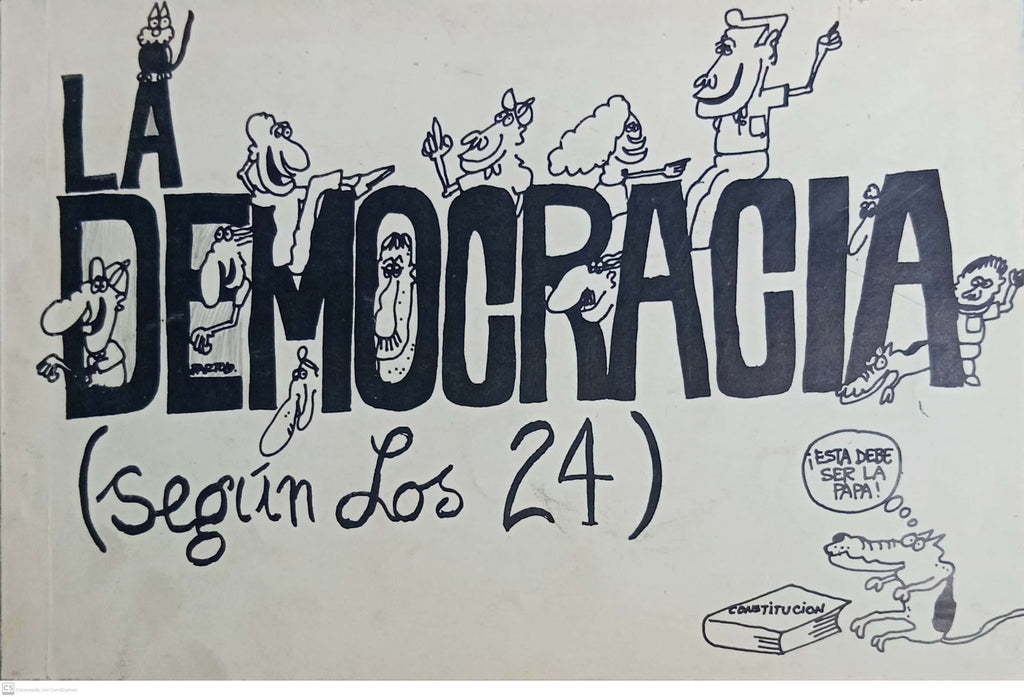 LA
DEMOCRACIA
PARTUD.
(según Los 24)
¡ESTA DEBE
SER LA
PAPA!
CONSTITUCION
CS Escaneado con CamScanner